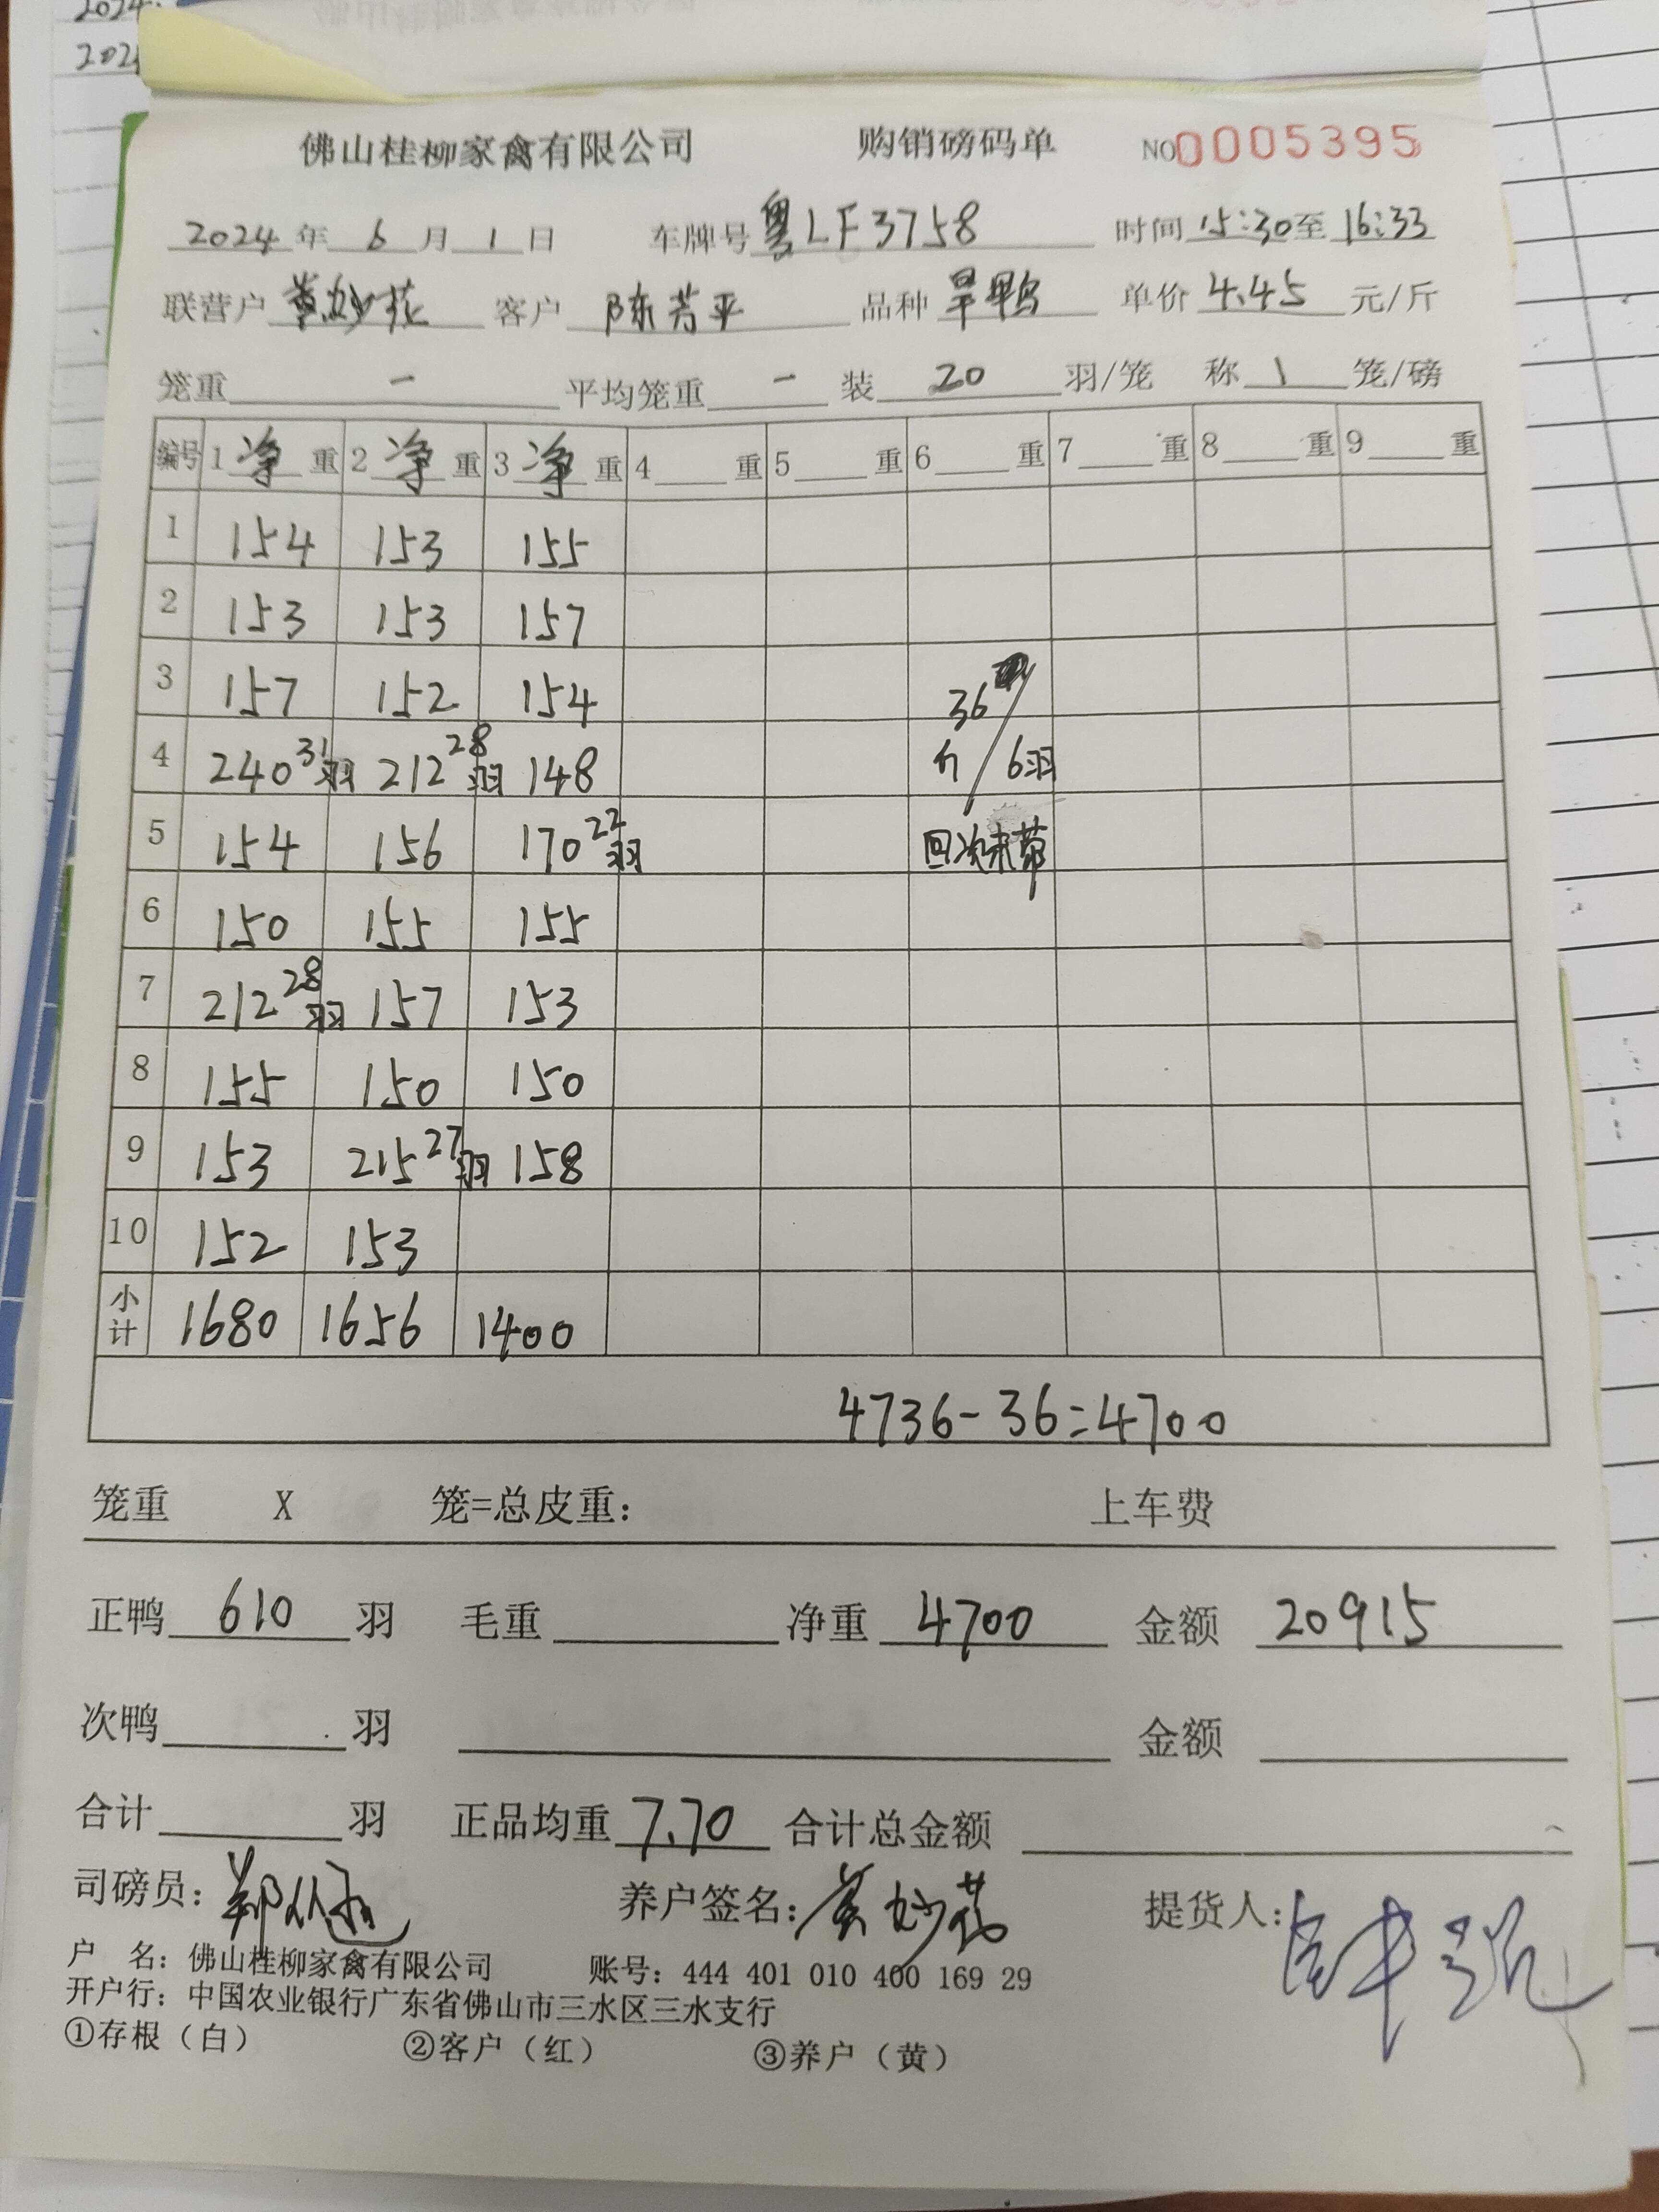 2024.
202
佛山桂柳家禽有限公司 购销磅码单 NO0005395
2024 年 6 月 1 日 车牌号 粤LF3758 时间 15:30 至 16:33
联营户 黄妙花 客户 陈芳平 品种 旱鸭 单价 4.45 元/斤
笼重 一 平均笼重 一 装 20 羽/笼 称 1 笼/磅
编号 1 净 重 2 净 重 3 净 重 4 重 5 重 6 重 7 重 8 重 9 重
1 154 153 155
2 153 153 157
3 157 152 154 36
4 240 31羽 212 28羽 148 斤/6羽
5 154 156 170 22羽 回次未带
6 150 155 155
7 212 28羽 157 153
8 155 150 150
9 153 215 27羽 158
10 152 153
小计 1680 1656 1400
4736-36=4700
笼重 X 笼=总皮重: 上车费
正鸭 610 羽 毛重 净重 4700 金额 20915
次鸭 羽 金额
合计 羽 正品均重 7.70 合计总金额
司磅员: 养户签名: 黄妙花 提货人:
户 名: 佛山桂柳家禽有限公司 账号: 444 401 010 400 169 29
开户行: 中国农业银行广东省佛山市三水区三水支行
①存根（白） ②客户（红） ③养户（黄）